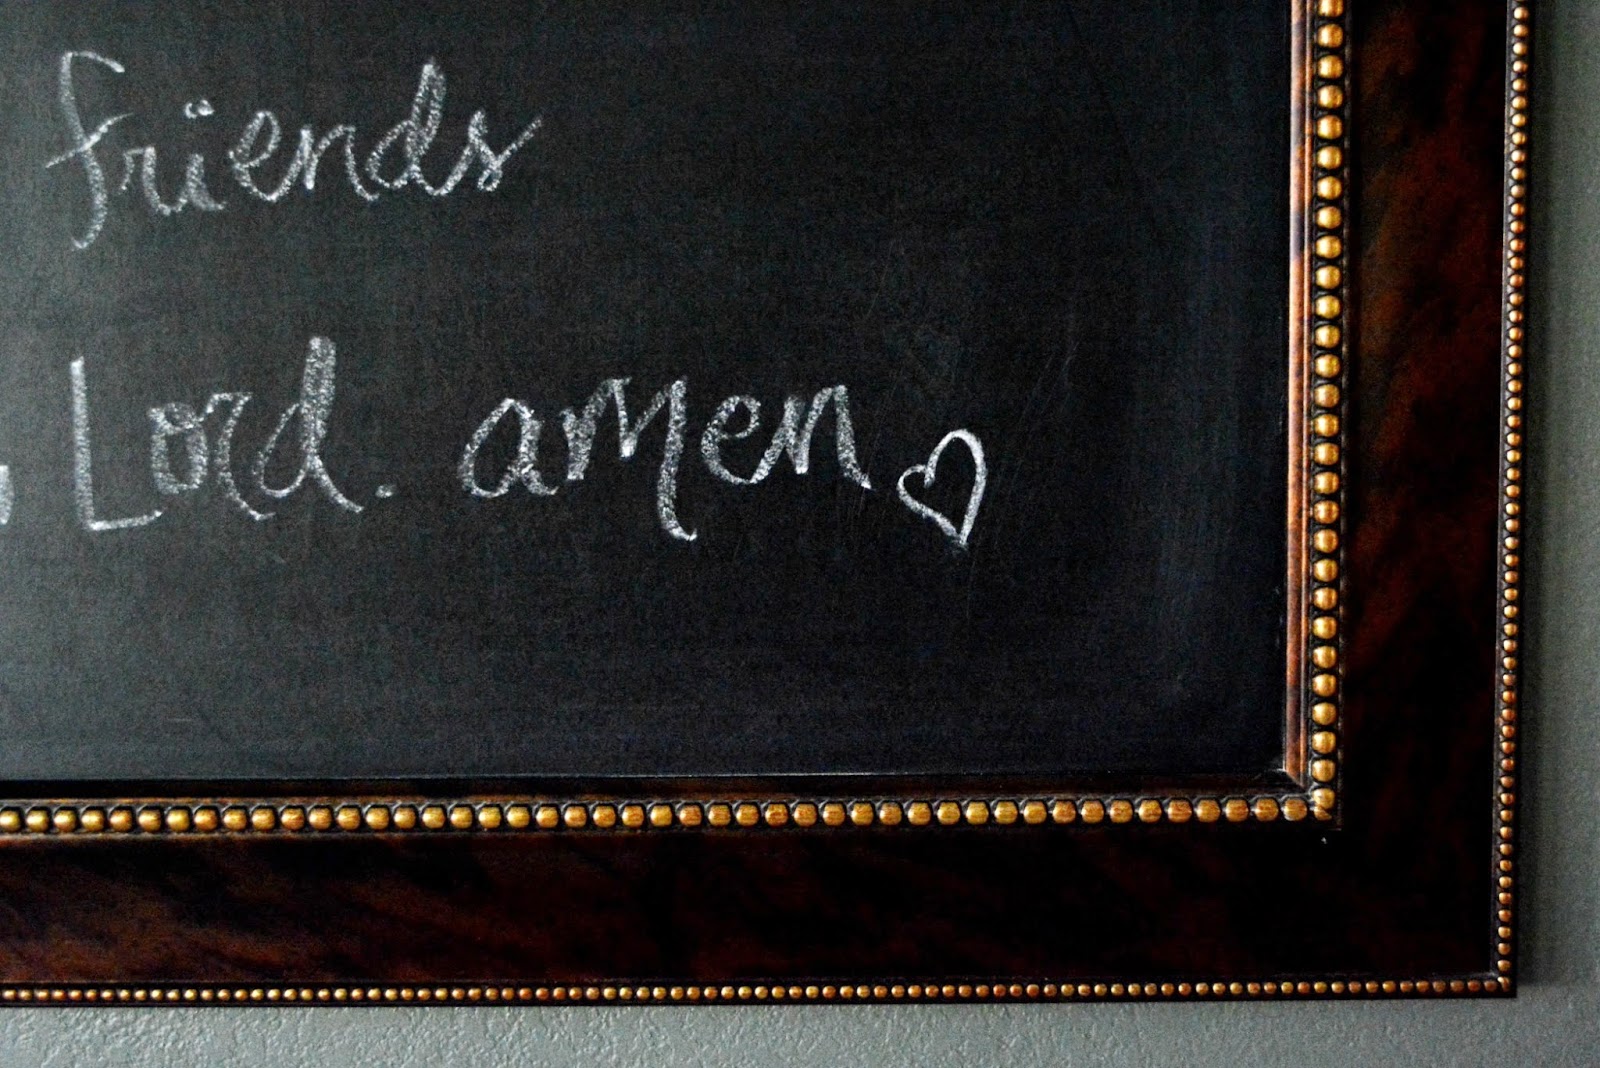 friends
Lord. amen